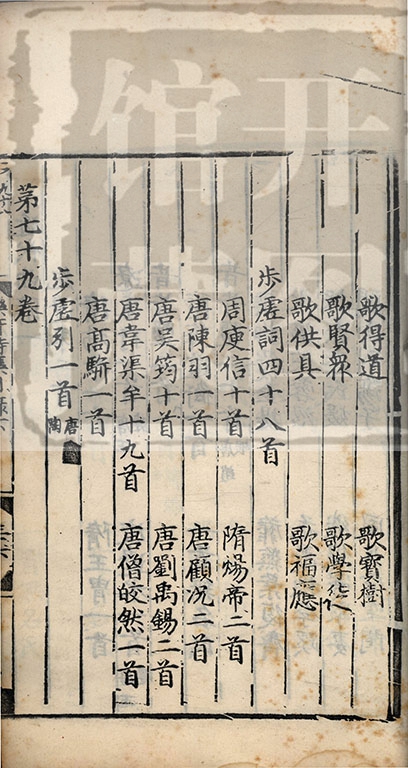 歌得道 歌寶樹
歌賢衆 歌學徒
歌供具 歌福應
步虛詞四十八首
周庾信十首 隋煬帝二首
唐陳羽一首 唐顧況二首
唐吳筠十首 唐劉禹錫二首
唐韋渠牟十九首 唐僧皎然一首
唐髙駢一首
步虛引一首 唐陶
第七十九卷